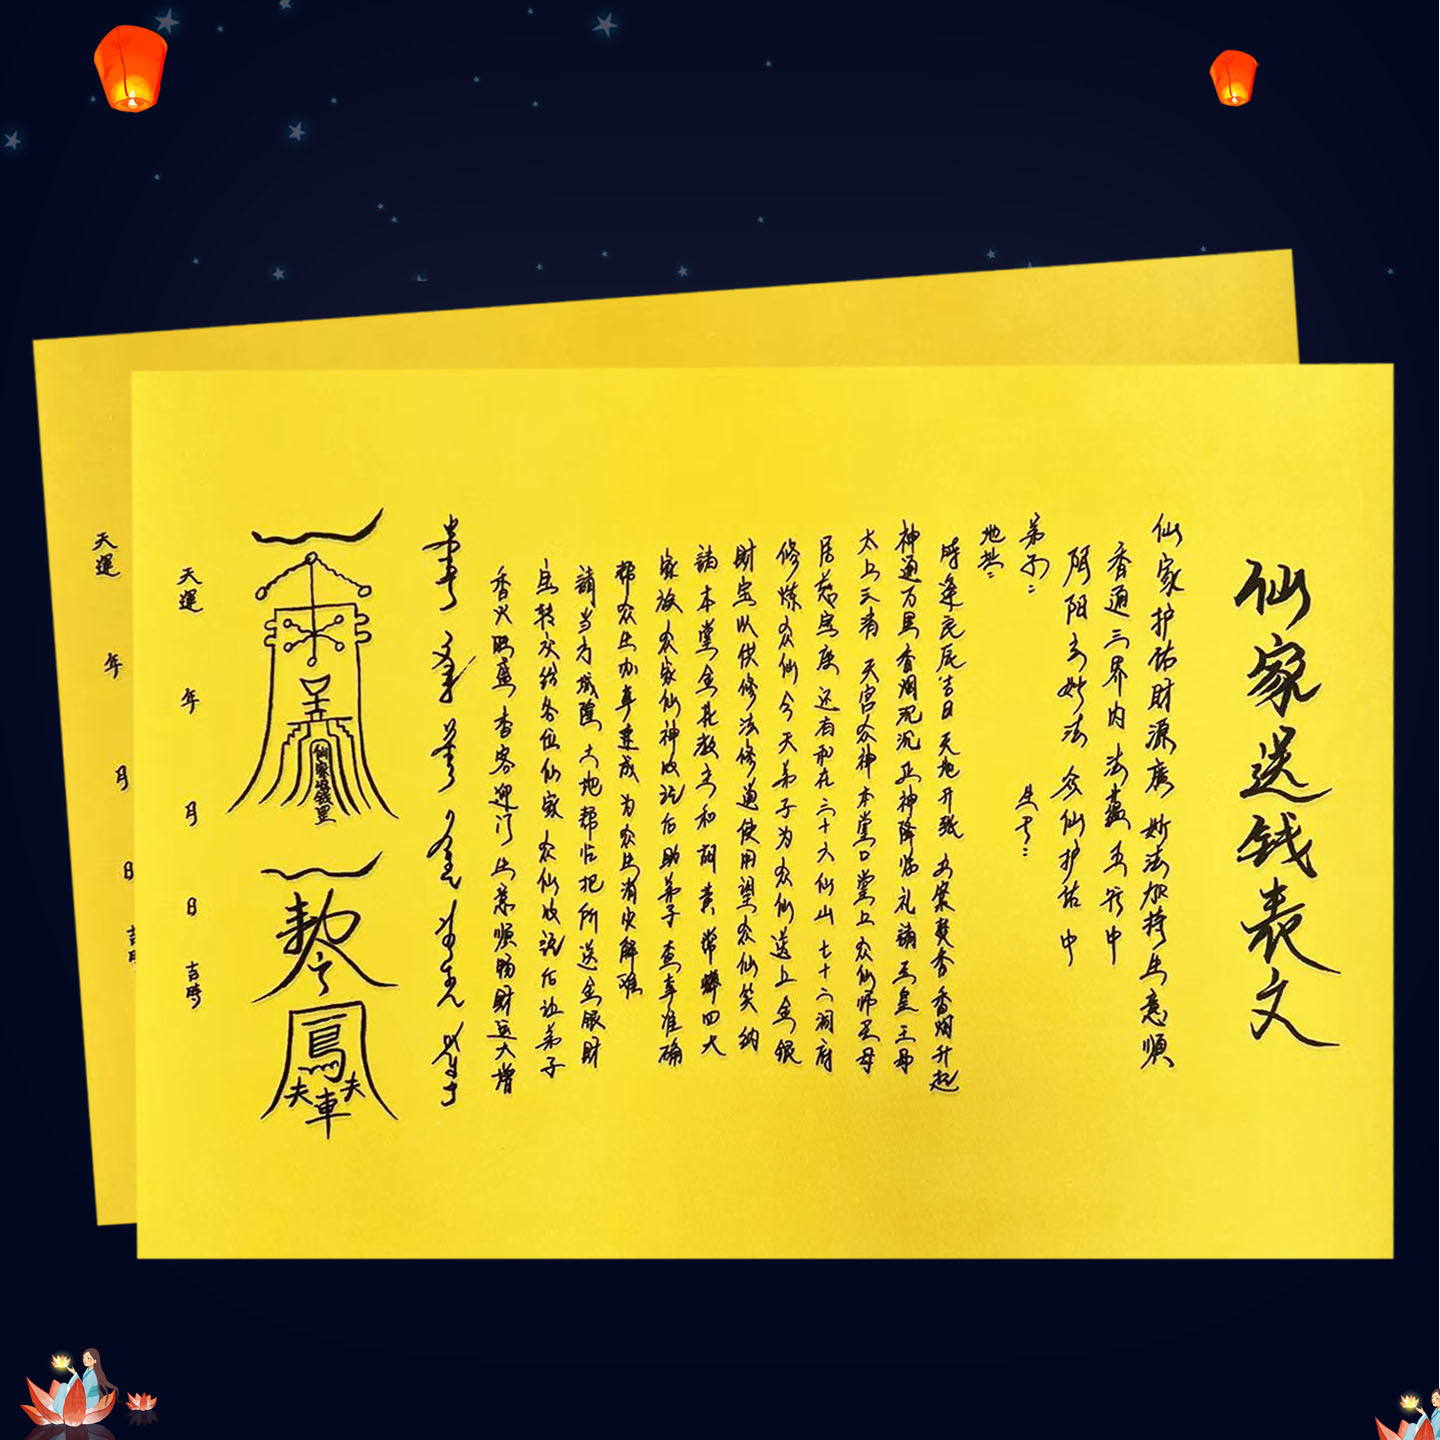 仙家送钱表文
仙家护佑财源广 妙法加持生意顺
香通三界内 法藏五行中
阴阳玄妙法 众仙护佑中
弟子：生辛：
地址：
时逢良辰吉日 天地开张 力案焚香 香烟升起
神通万里 香烟沉沉 正神降临 礼请玉皇王母
太上三清 天宫众神 本堂口堂上众仙师圣母
还有那在三十六仙山 七十二洞府
修炼众仙 今天弟子为众仙送上金银
财宝以供修法修道使用 望众仙笑纳
请本堂金花教主和胡黄常蟒四大
家族众家仙神收讫后助弟子查事准确
帮众生办事速成 为众生消灾解难
请当方城隍 土地帮忙把所送金银财
宝转交给各位仙家 众仙收讫后让弟子
香火旺盛 香客迎门 生意顺畅 财运大增
仙家送钱里
凤
夫車夫
天運 年 月 日 吉時
天運 年 月 日